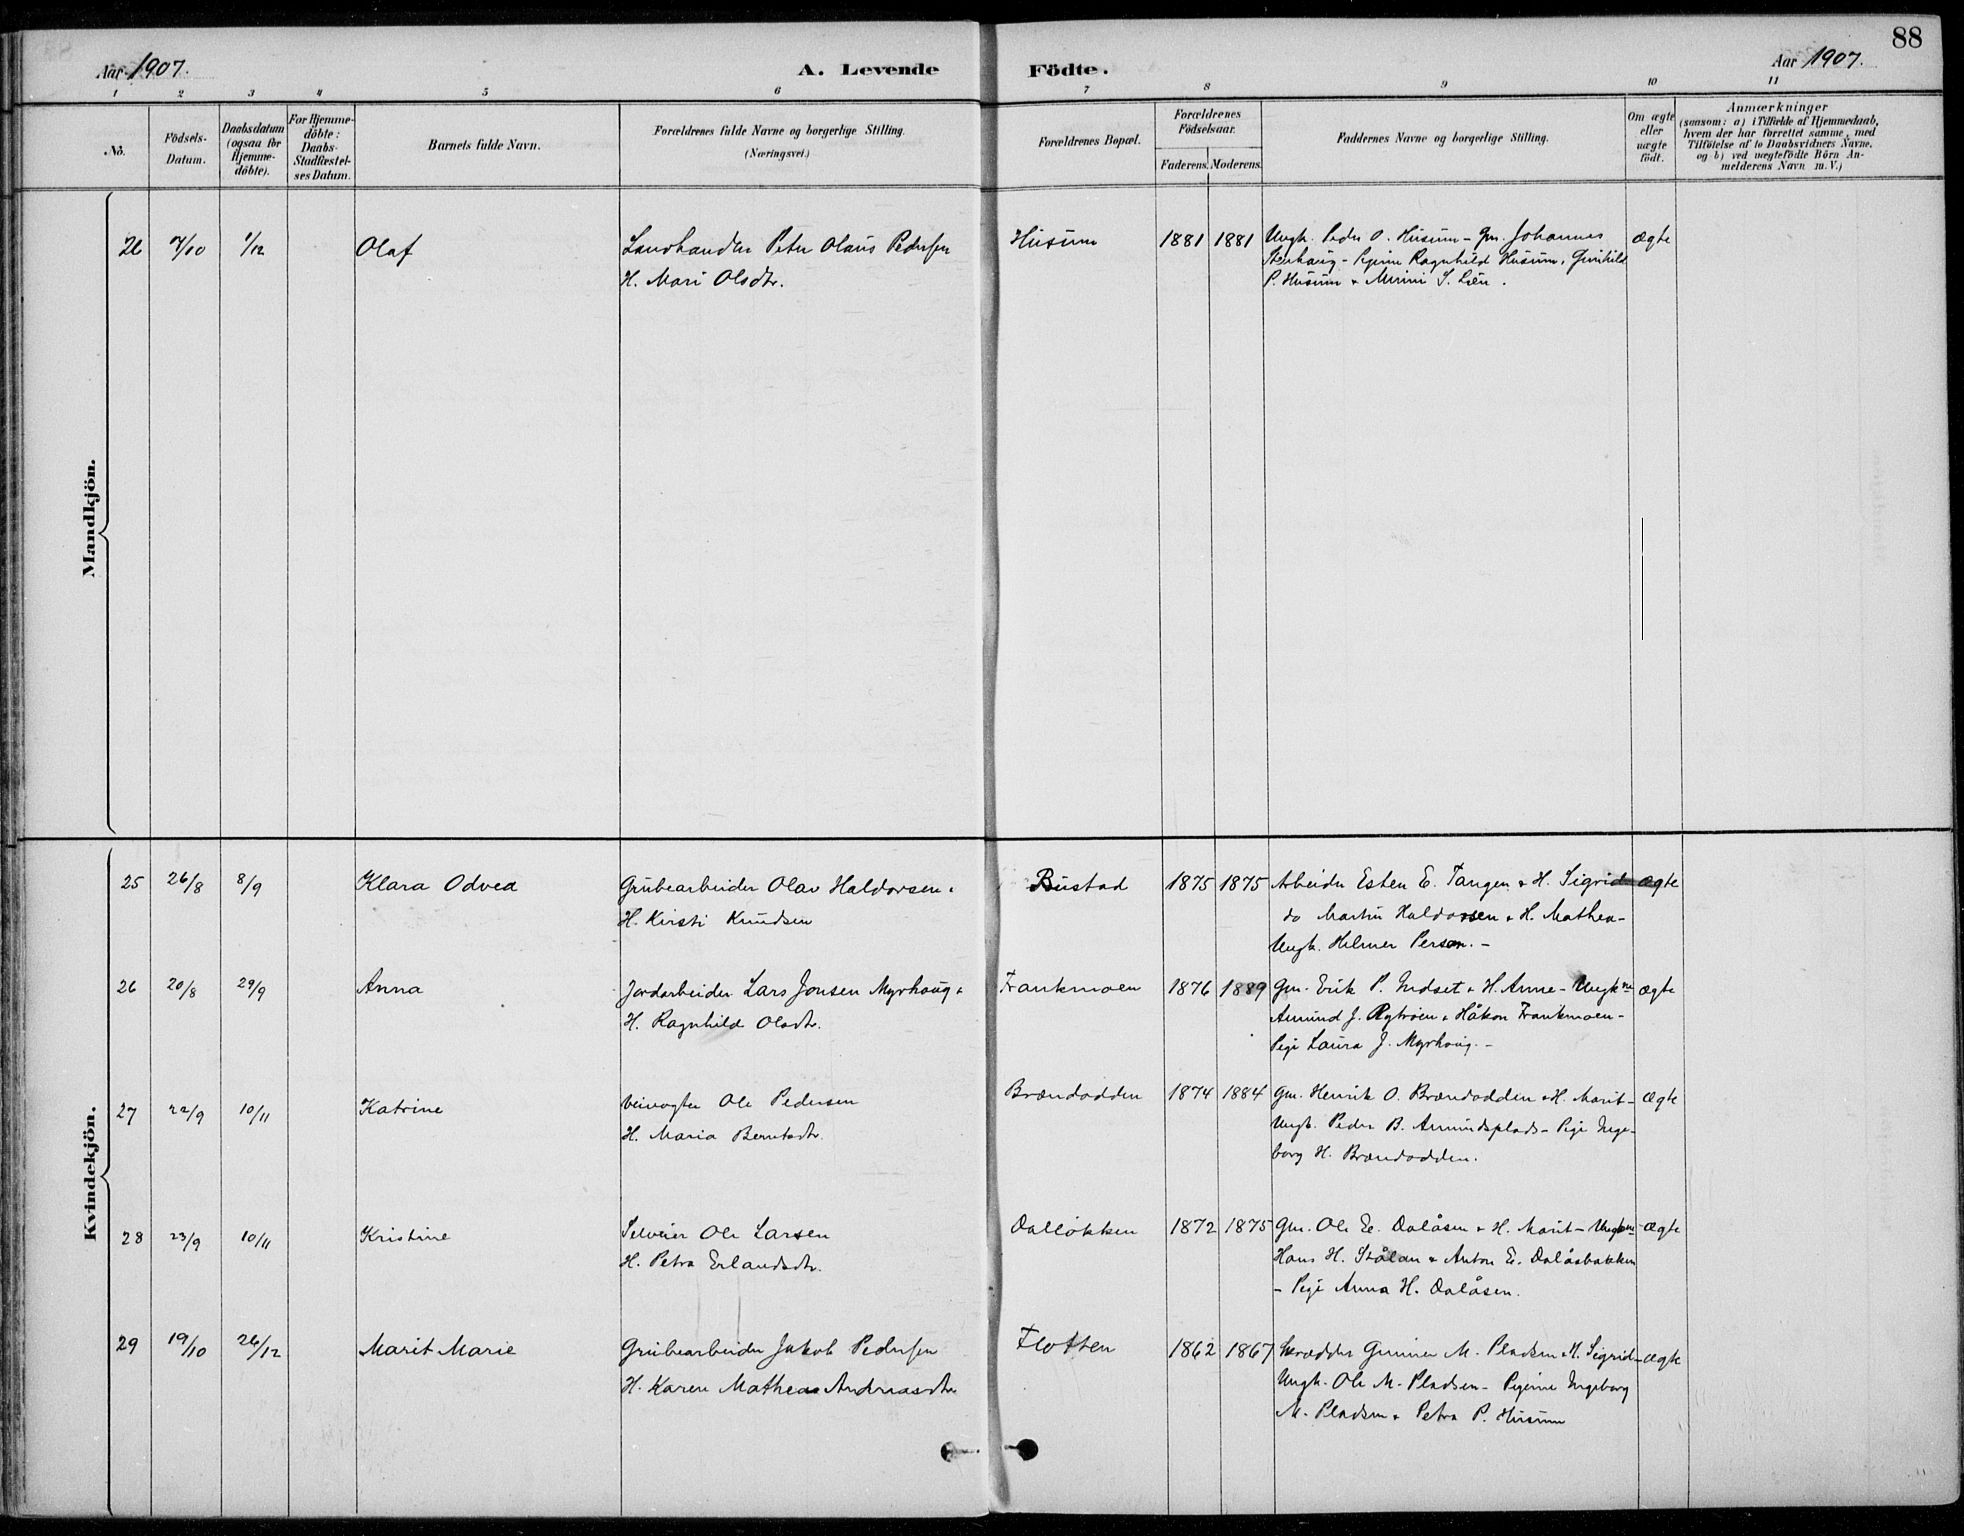 88
Aar 1907.
A. Levende
Födte.
Aar 1907.
1 2 3 4 5 6 7 8 9 10 11
No.
Födsels-Datum.
Daabsdatum (ogsaa for Hjemme-döbte).
For Hjemme-döbte: Daabs-Stadfæstel-ses Datum.
Barnets fulde Navn.
Forældrenes fulde Navne og borgerlige Stilling.
(Næringsvei.)
Forældrenes Bopæl.
Forældrenes Födselsaar.
Faderens. Moderens.
Faddernes Navne og borgerlige Stilling.
Om ægte eller uægte födt.
Anmærkninger
(saasom: a) i Tilfælde af Hjemmedaab,
hvem der har forrettet samme, med
Tilföielse af to Daabsvidners Navne,
og b) ved uægtefödte Börn An-
melderens Navn m. V.)
Mandkjön.
26 7/10 1/12 Olaf Landhandler Peter Olaus Pedersen Husum 1881 1881 Ungk. Peder O. Husum - Gm. Johannes ægte
H. Mari Olsdtr. Stenhaug - Pigerne Ragnhild Husum, Gunhild
P. Husum & Mirini S. Lien.
Kvindekjön.
25 26/8 8/9 Klara Odvea Grubearbeider Olav Haldorsen & Bustad 1875 1875 Arbeider Esten E. Tangen & H. Sigrid ægte
H. Kirsti Knudsen do Martin Haldorsen & H. Mathea-
Ungk. Helmer Person. -
26 20/8 29/9 Anna Jordarbeider Lars Jonsen Myrhoug & Frankmoen 1876 1889 Gm. Erik P. Indset & H. Anne - Ungkne ægte
H. Ragnhild Olsdtr. Amund J. Rytroen & Håkon Frankmoen -
Pige Laura J. Myrhoug. -
27 22/9 10/11 Katrine Veivogter Ole Pedersen Brændodden 1874 1884 Gm. Henrik O. Brændodden & H. Marit - ægte
H. Maria Berntsdtr. Ungk. Peder B. Amundsplads - Pige Inge-
borg H. Brændodden.
28 23/9 10/11 Kristine Selveier Ole Larsen Dalløkken 1872 1875 Gm. Ole E. Dalåsen & H. Marit - Ungkne ægte
H. Petra Erlandsdtr. Hans H. Stålan & Anton E. Dalåsbakken
- Pige Anna H. Dalåsen.
29 19/10 26/12 Marit Marie Grubearbeider Jakob Pedersen Flotten 1862 1867 Skrædder Gunner M. Pladsen & H. Sigrid - ægte
H. Karen Mathea Andreasdtr. Ungk. Ole M. Pladsen - Pigerne Ingeborg
M. Pladsen & Petra P. Husum